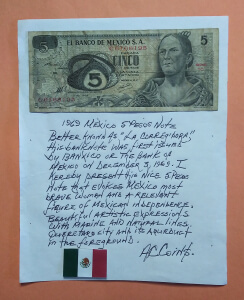 EL BANCO DE MEXICO S.A.
5
CINCO
5
1969 MEXICO 5 PESOS NOTE
BETTER KNOWN AS "LA CORREGIDORA"
THIS BANKNOTE WAS FIRST ISSUED
BY BANXICO OR THE BANK OF
MEXICO ON DECEMBER 3, 1969. I
HEREBY PRESENT THIS NICE 5 PESO
NOTE THAT EVOKES MEXICO MOST
BRAVE WOMAN AND A RELEVANT
FIGURE OF MEXICAN INDEPENDENCE,
BEAUTIFUL ARTISTIC EXPRESSIONS
WITH FINE LINE AND NATURAL LINES,
QUERETARO CITY AND ITS AQUEDUCT
IN THE FOREGROUND.